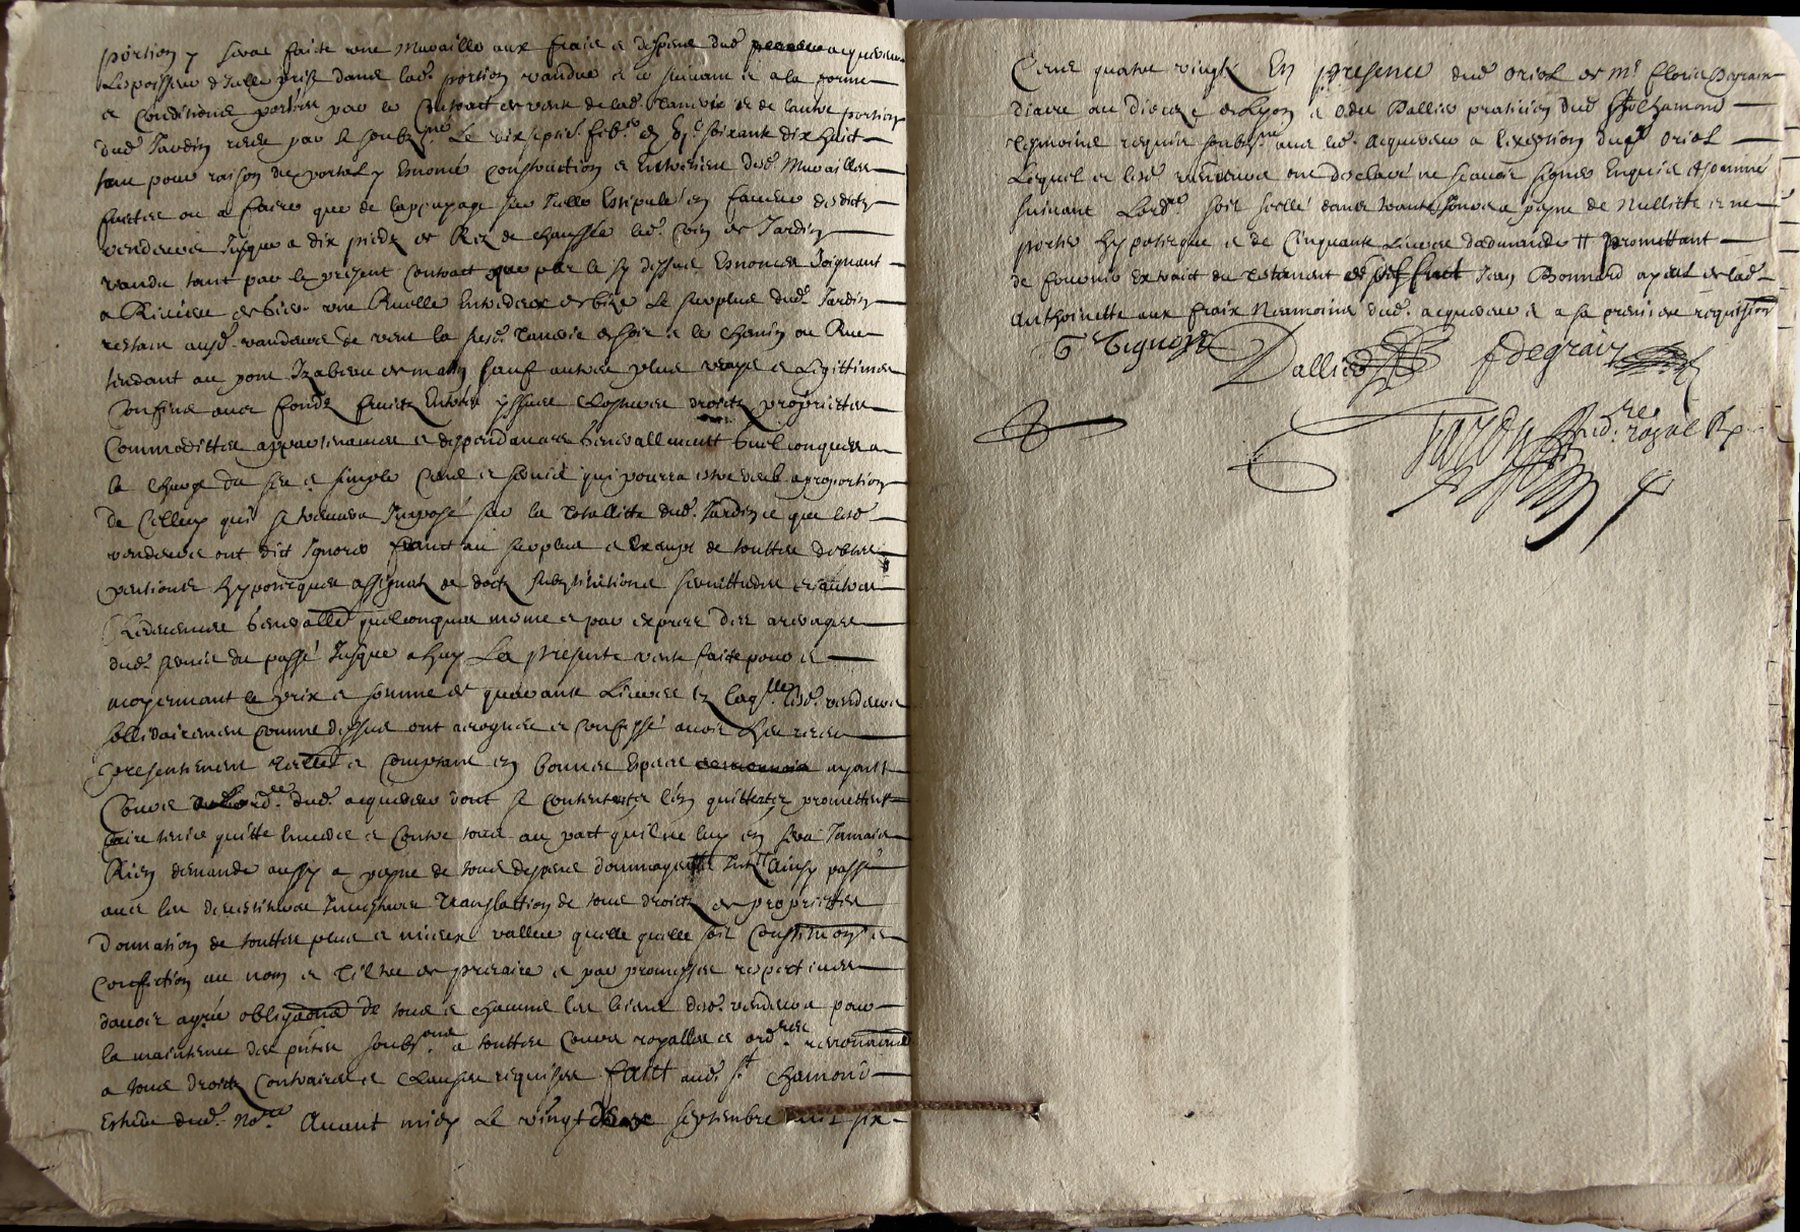 portion y sera faicte une muraille aux fraix et despens dud. acquereur
Lespoisseur dicelle prise dans lad. portion vandue et ce suivant et a la forme
et conditions portées par le contract de vente de lad. tannerie et de lautre portion
dud. Jardin receu par le soubzné Le dix septie. feb. soixante dix huict
tant pour raison du portal y enoncé construction et entretien desd. murailles
faictes ou a faire que de lappuyage sur icelle estipulé en faveur desdicts
vendeurs jusque a dix piedz de Rez de chaussée led. coin de Jardin
vandu tant par le present contract que par le sy dessus enoncé Joignant
a Riviere de bize une Ruelle entredeux de bize le surplus dud. Jardin
restant ausd. vandeurs de vent la susd. tannerie de soir et le chemin ou Rue
tendant au pont Izabeau de matin sauf autres plus vrays et legittimes
Confins avec fondz fruictz entrées yssues clostures droictz proprietés
Commodittés appartenances et deppendances generallement quelconques a
la charge du sen et simple cens et servis qui pourra estre deub a proportion
de celluy qui se trouvera Imposé sur la totallitté dud. Jardin et que lesd.
vendeurs ont dict Ignorer franct au surplus et exempt de touttes debtes
pentions hypotecques assignatz de dotz substitutions servittudes et autres
Redevances generalles quelconques mesme et par exprez des arrerages
dud. servis du passé Jusque a huy La presente vente faicte pour et
moyennant le prix et somme de quarante Livres laqlle lesd. vendeurs
sollidairement comme dessus ont recogneu et confessé avoir heu receu
presentement et comptant en bonnes especes ayant
Cours dud. acquereur dont se contentent len quittent promettent
faire tenir quitte envers et contre tous au pact quil ne luy en sera Jamais
Rien demandé aussy a payne de tous despens dommages Ainsy passé
avec les devestitures Investitures translattion de tous droictz de proprietés
Donnation de touttes plus et mieux vallue quelle quelle soit et
confection au nom et tiltre de precaire et par promesses respectives
davoir agréé de tous et chacuns les biens desd. vendeurs pour
la maintenue des soubzons a touttes Cours royalles et ordres
a tous droictz contraires et clauses requises faict aud. St Chamond
Estude dud. Nore Avant midy Le vingt septembre mil six
Cens quatre vingtz En presence dud. Oriol et Mr Floris Degraix
diacre au diocèze de Lyon et Odeu Dallier praticien dud. St Chamond
tesmoins requis soubznés avec led. acquereur a lexception dud. Oriol
Lequel et lesd. vendeurs ont desclaré ne scavoir signer enquis et sommé
suivant Lordre. soit scellé dans trante Jours a payne de nullitté et ne
porter hypotecque et de cinquante Livres dadmande # promettant
de fournir extraict du testament Jean Bonnard ayeul de lad.
Anthoinette aux fraix neamoins dud. acquereur et a sa premiere requisition
G Tignost
Dallier
f degraix
Nore royal